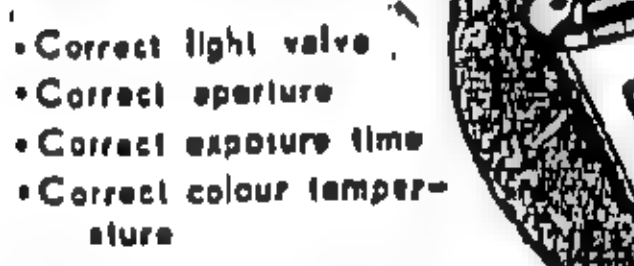 • Correct light valve
• Correct aperture
• Correct exposure time
• Correct colour temper-
ature